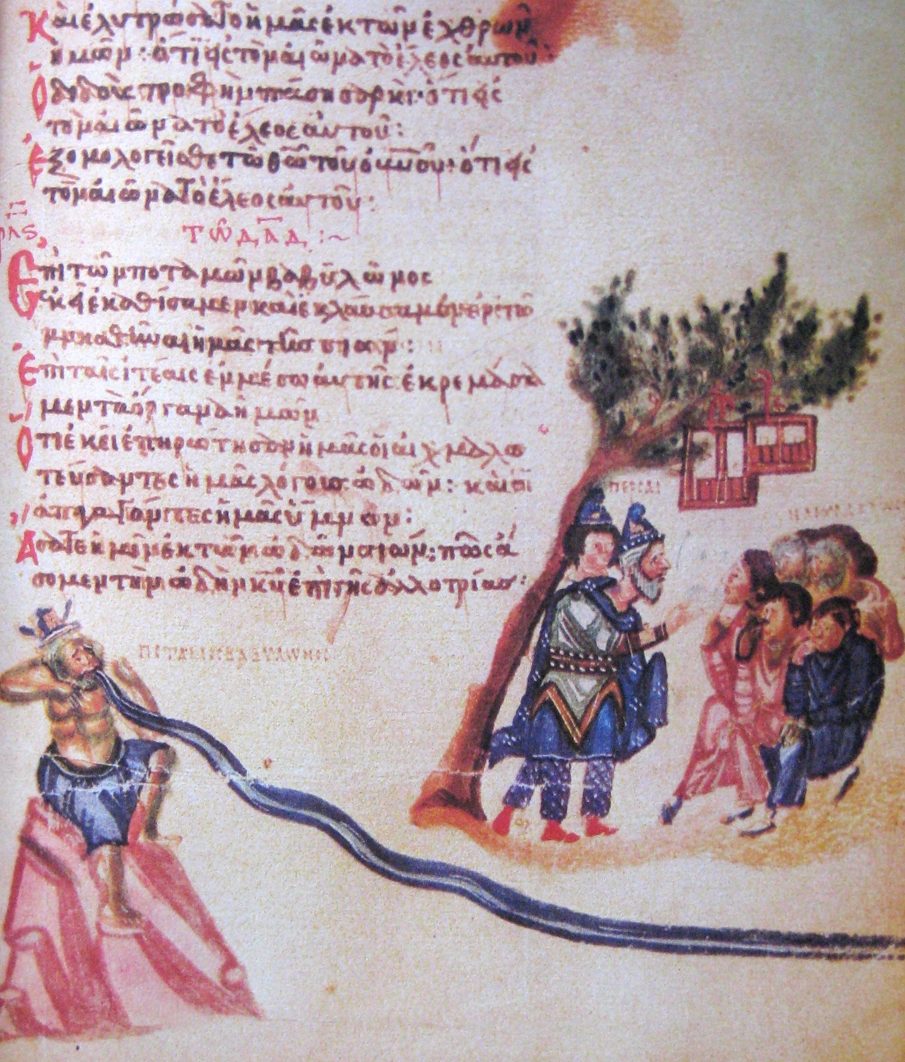 Καὶ ἐλυτρώσατο ἡμᾶς ἐκ τῶν ἐχθρῶν
ἡμῶν: ὅτι εἰς τὸν αἰῶνα τὸ ἔλεος αὐτοῦ:
Ὁ διδοὺς τροφὴν πάσῃ σαρκί· ὅτι εἰς
τὸν αἰῶνα τὸ ἔλεος αὐτοῦ:
Ἐξομολογεῖσθε τῶ θῶ τοῦ οὐνοῦ· ὅτι εἰς
τὸν αἰῶνα τὸ ἔλεος αὐτοῦ:
ΤῶΔᾱΔ:~
Ἐπὶ τῶν ποταμῶν βαβυλῶνος
ἐκεῖ ἐκαθίσαμεν καὶ ἐκλαύσαμεν· ἐν τῶ
μνησθῆναι ἡμᾶς τῆς σιών:
Ἐπὶ ταῖς ἰτέαις ἐν μέσω αὐτῆς ἐκρεμάσα
μεν τὰ ὄργανα ἡμῶν
Ὅτι ἐκεῖ ἐπηρώτησαν ἡμᾶς οἱ αἰχμαλω
τεύσαντες ἡμᾶς λόγους ὠδῶν: καὶ οἱ
ἀπαγαγόντες ἡμᾶς ὕμνον:
Ἄσατε ἡμῖν ἐκ τῶν ὠδῶν σιών: πῶς ἄ
σομεν τὴν ὠδὴν κῡ ἐπὶ γῆς ἀλλοτρίας:
ΠΕΡCΑΙ